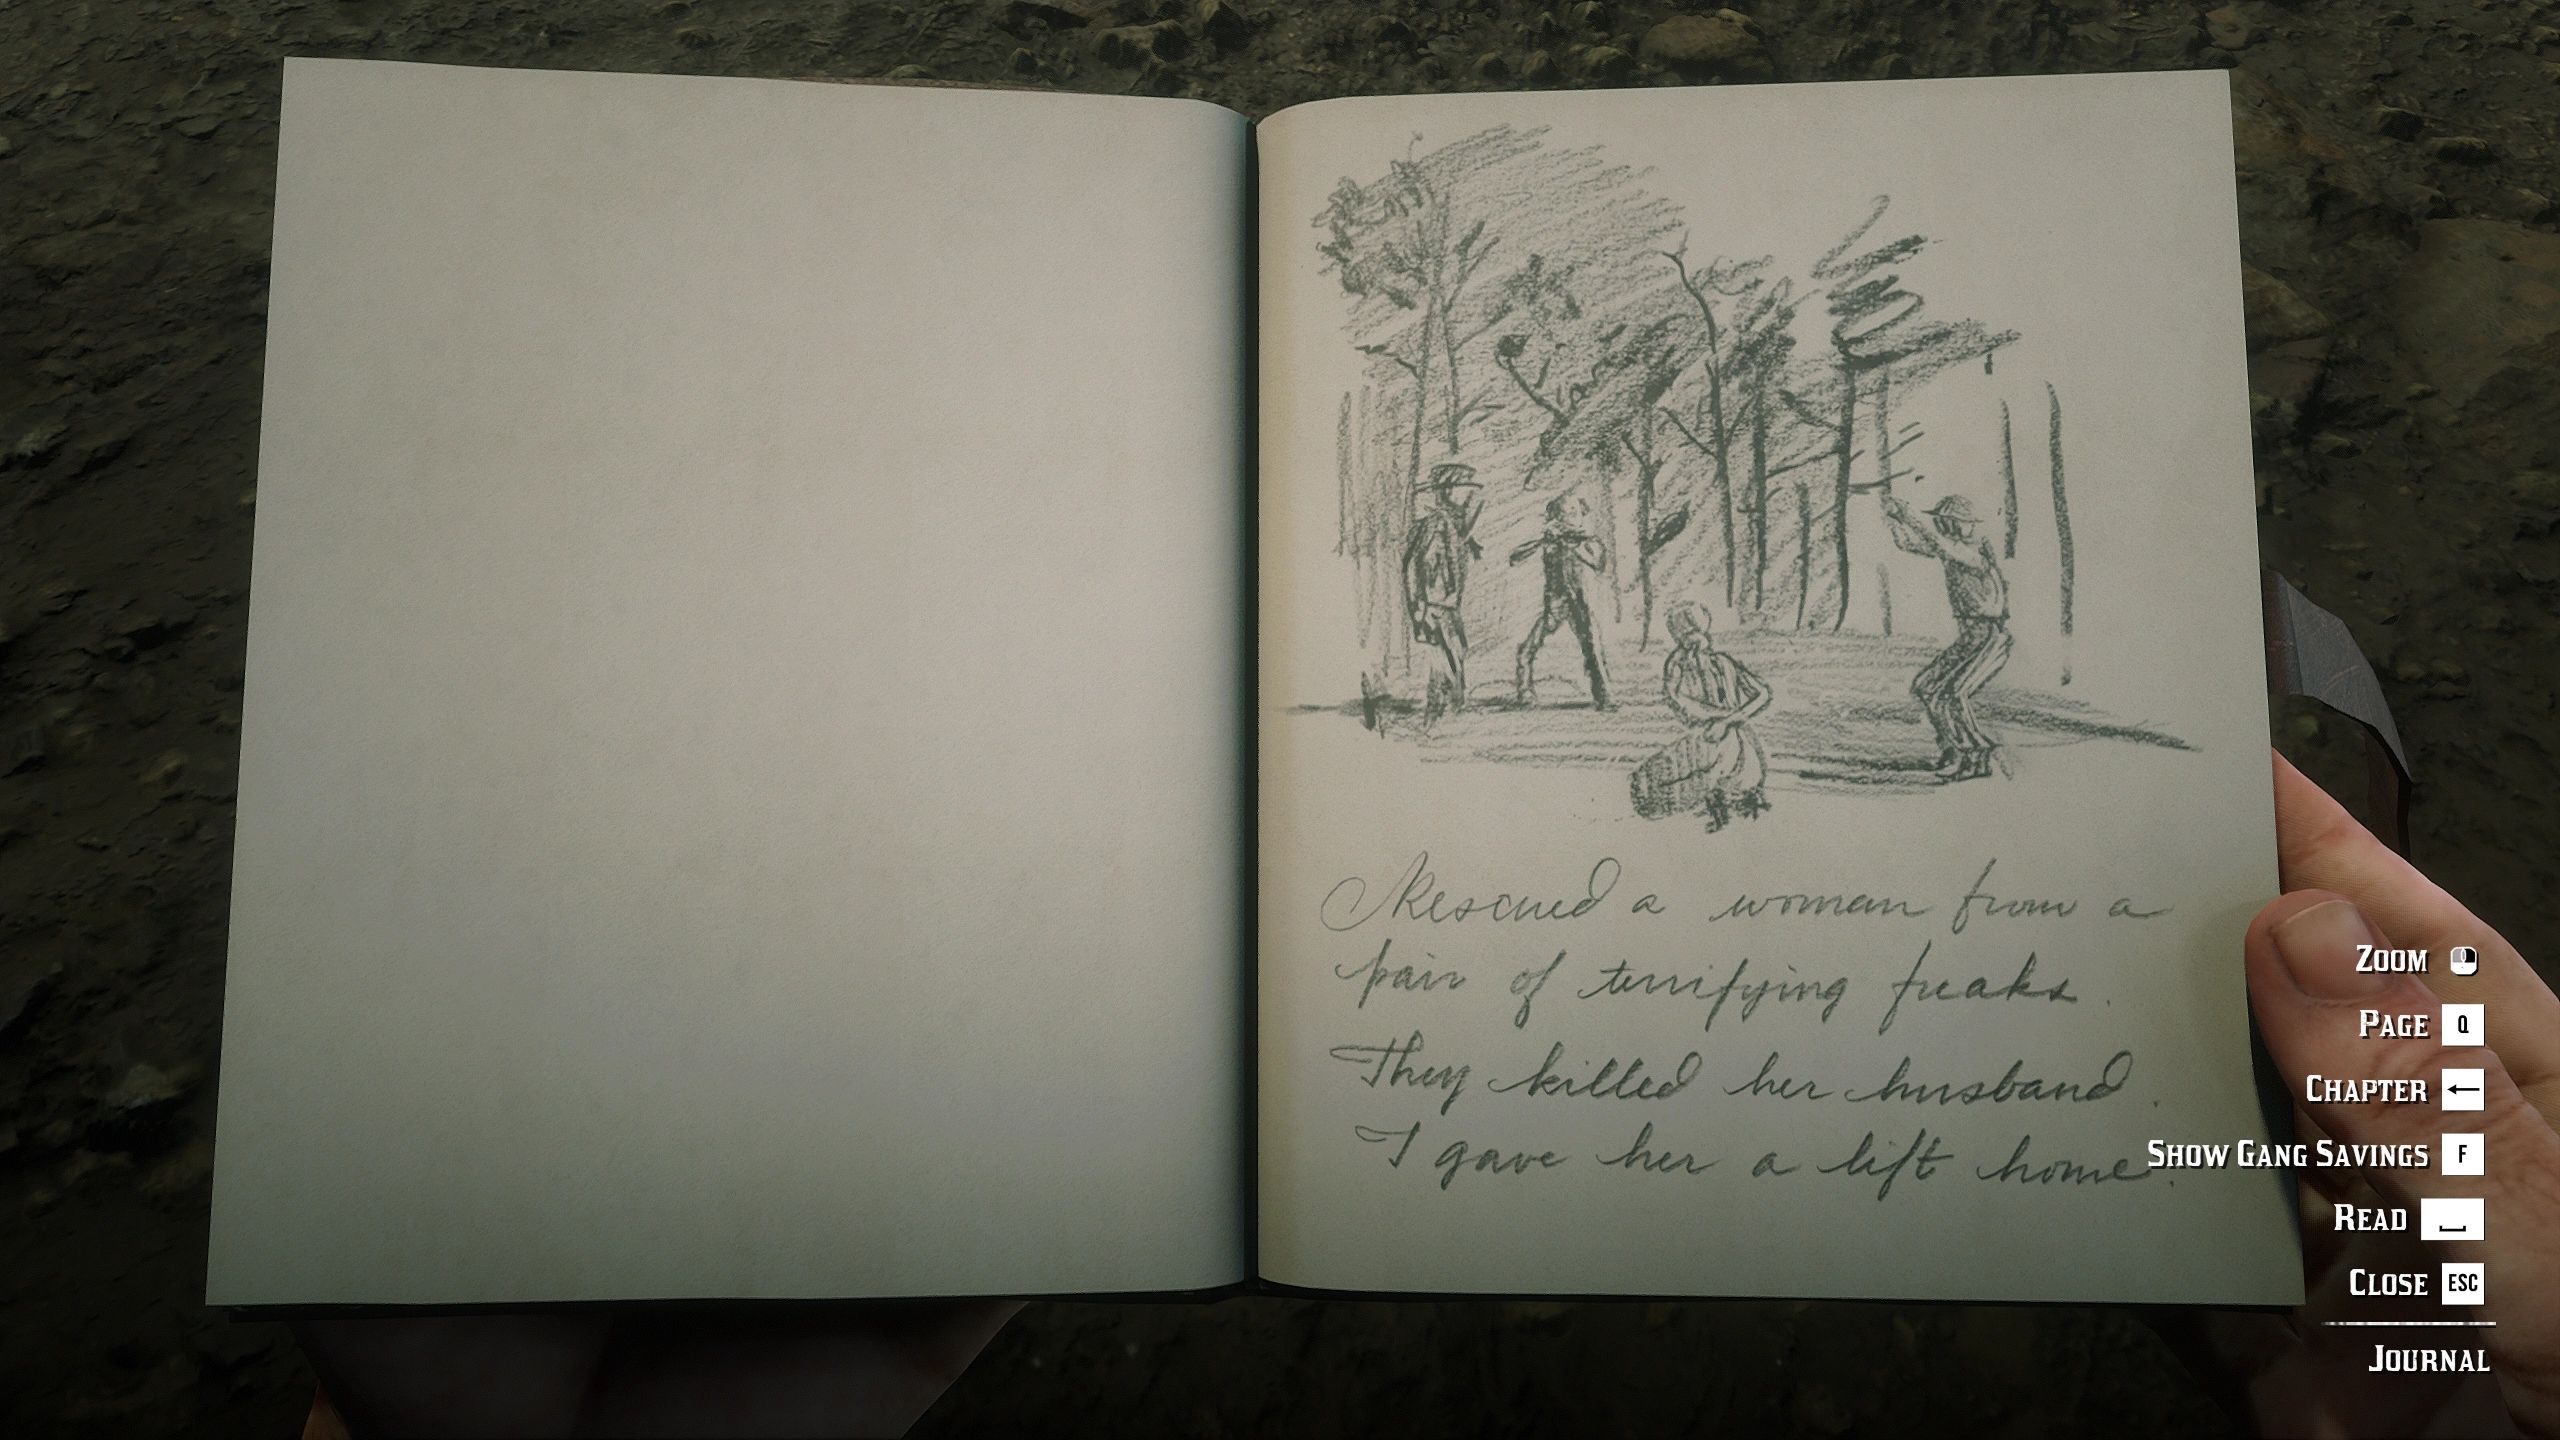 Rescued a woman from a
pair of terrifying freaks.
They killed her husband.
I gave her a lift home.
ZOOM
PAGE Q
CHAPTER ←
SHOW GANG SAVINGS F
READ
CLOSE ESC
JOURNAL